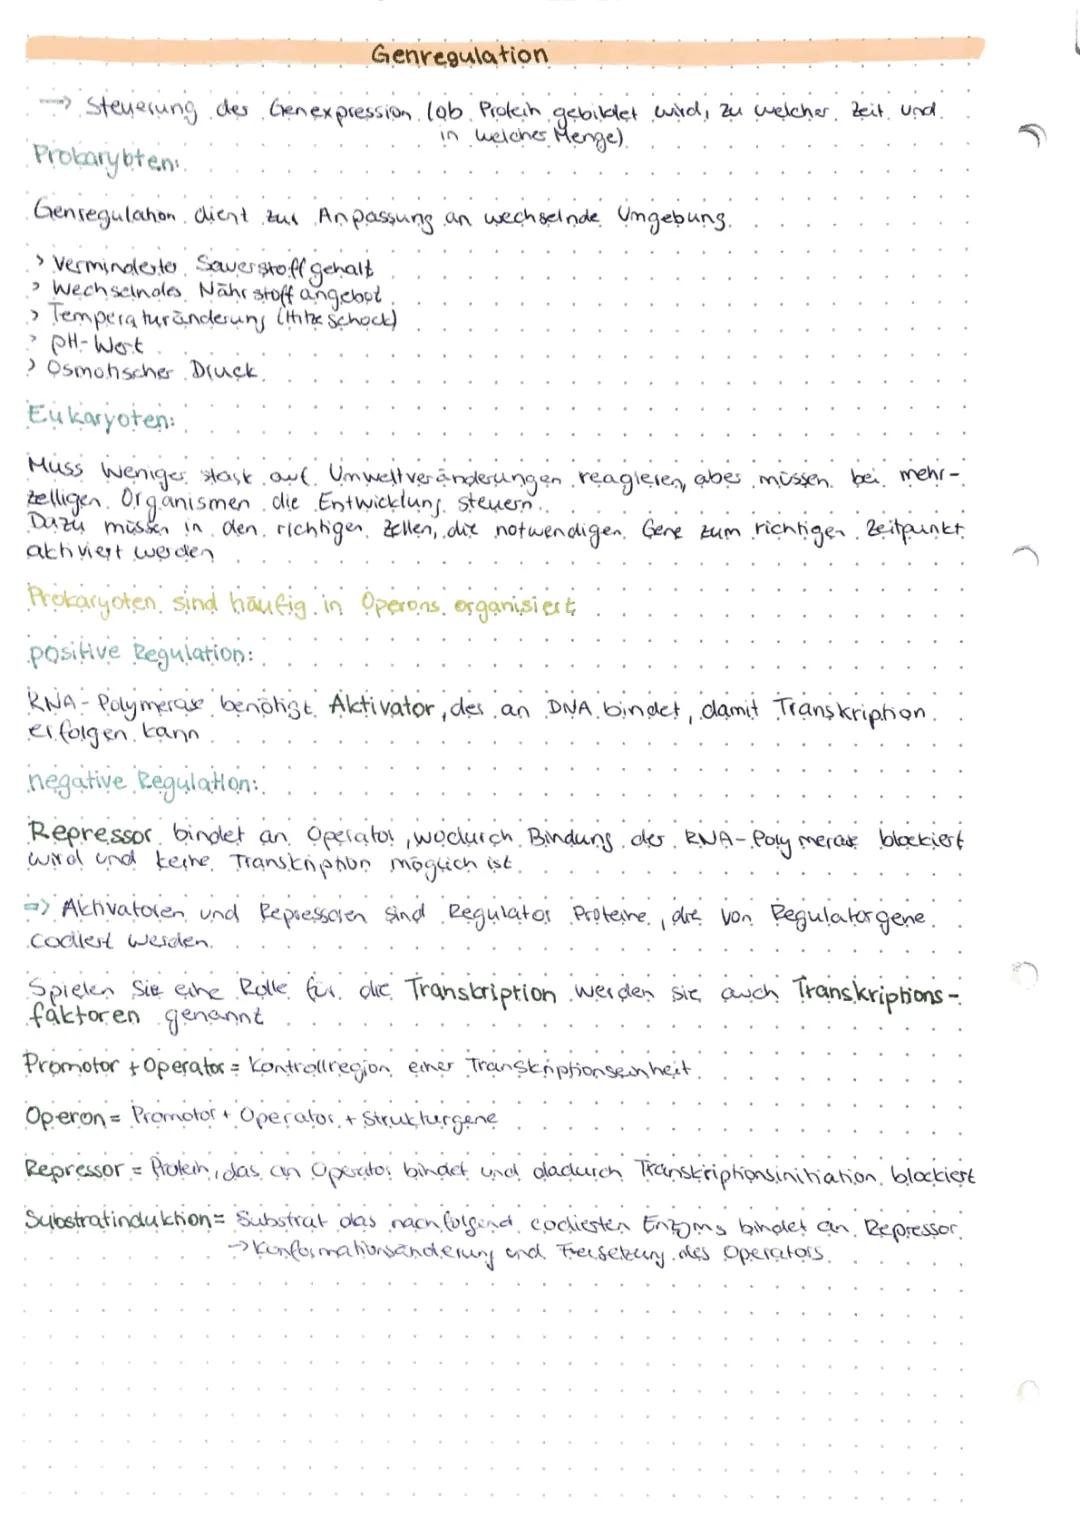 Genregulation
→ Steuerung der Genexpression (ob Protein gebildet wird, zu welcher Zeit und
in welcher Menge)
Prokaryoten:
Genregulation dient zur Anpassung an wechselnde Umgebung.
> Verminderter Sauerstoffgehalt
> Wechselndes Nährstoffangebot
> Temperaturänderung (Hitzeschock)
> pH-Wert
> Osmotischer Druck
Eukaryoten:
Muss Weniger stark auf Umweltveränderungen reagieren, aber müssen bei mehr-
zelligen Organismen die Entwicklung steuern.
Dazu müssen in den richtigen Zellen, die notwendigen Gene zum richtigen Zeitpunkt
aktiviert werden
Prokaryoten sind häufig in Operons organisiert
positive Regulation:
RNA-Polymerase benötigt Aktivator, der an DNA bindet, damit Transkription
erfolgen kann
negative Regulation:
Repressor bindet an Operator, wodurch Bindung der RNA-Polymerase blockiert
wird und keine Transkription möglich ist
=> Aktivatoren und Repressoren sind Regulator Proteine, die von Regulatorgene
codiert werden.
Spielen Sie eine Rolle für die Transkription werden sie auch Transkriptions-
faktoren genannt
Promotor + Operator = Kontrollregion einer Transkriptionseinheit
Operon = Promotor + Operator + Strukturgene
Repressor = Protein, das an Operator bindet und dadurch Transkriptionsinitiation blockiert
Substratinduktion = Substrat das nachfolgend codierten Enzyms bindet an Repressor
→ Konformationsänderung und Freisetzung des Operators